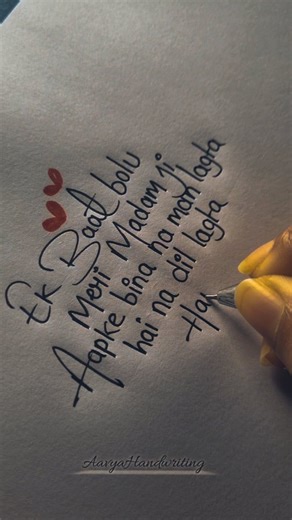 Ek Baat bolu
Meri Madam Ji
Aapke bina na man lagta
hai na dil lagta
Ha
AavyaHandwriting